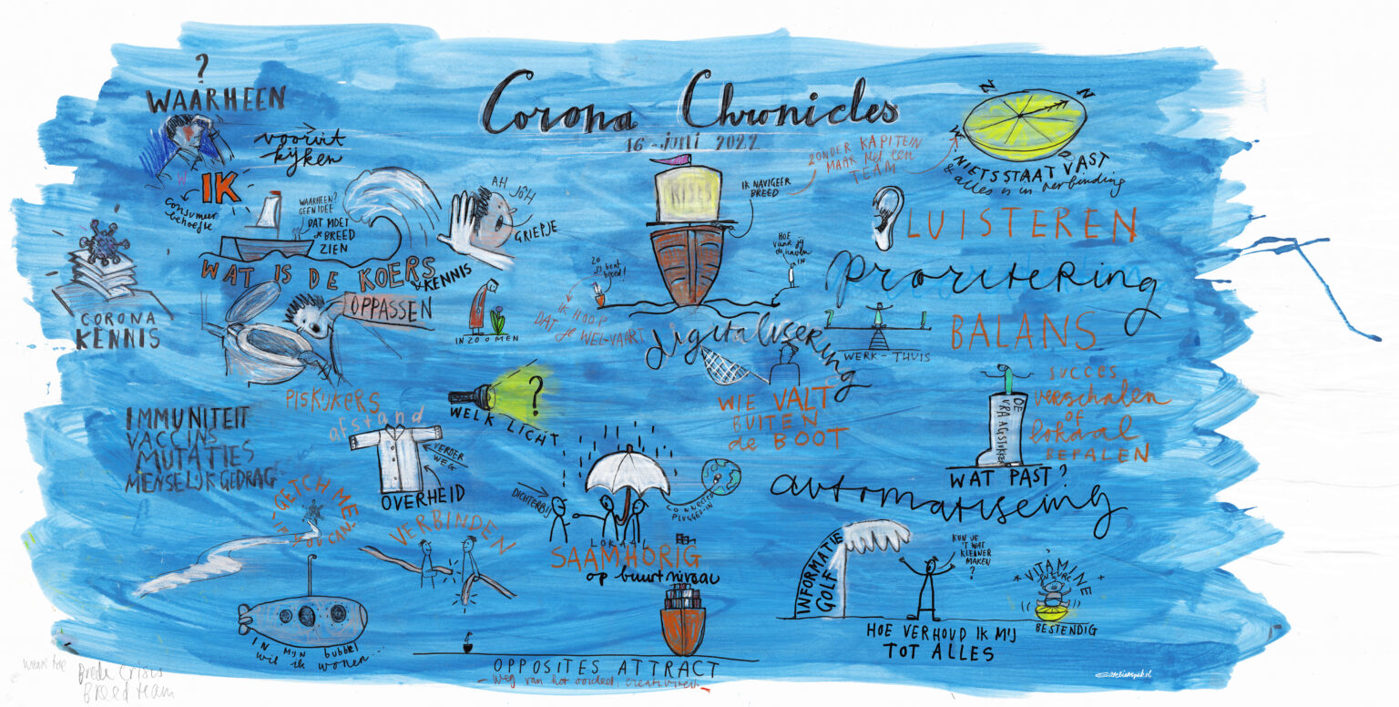 Corona Chronicles
16-juli 2022
?
WAARHEEN
vooruit
kijken
IK
consumeer
behoefte
WAARHEEN?
GEEN IDEE
DAT MOET
JE BREED
ZIEN
AH JOH
GRIEPJE
WAT IS DE KOERS
& KENNIS
OPPASSEN
CORONA
KENNIS
INZOOMEN
PISKIJKERS
IK NAVIGEER
BREED
ZONDER KAPITEIN
MAAK JE EEN
TEAM
ZO
JIJ BENT
IK HOOP
DAT JE WEL-VAART
digitalisering
N
Z
W
O
NIETS STAAT VAST
& alles is in verbinding
LUISTEREN
PRORITERING
BALANS
WERK-THUIS
WIE VALT
BUITEN
de BOOT
SUCCES
verschalen
OF
lokaal
BEPALEN
DE
VRAAGSTUKKEN
WAT PAST?
automatisering
IMMUNITEIT
VACCINS
MUTATIES
MENSELIJK GEDRAG
afstand
VERDER
WEG
OVERHEID
?
WELK LICHT
CETCH ME
IF
YOU CAN
VERBINDEN
DICHTERBIJ
CONNECTED
PLUGGED-IN
LOKAAL
SAAMHORIG
op buurtniveau
IN MIJN bubbel
wil ik wonen...
OPPOSITES ATTRACT
INFORMATIE
GOLF
KUN JE
'T WAT
KLEINER
MAKEN
?
HOE VERHOUD IK MIJ
TOT ALLES
VITAMINE
BESTENDIG
Brede Crisis
Breed team